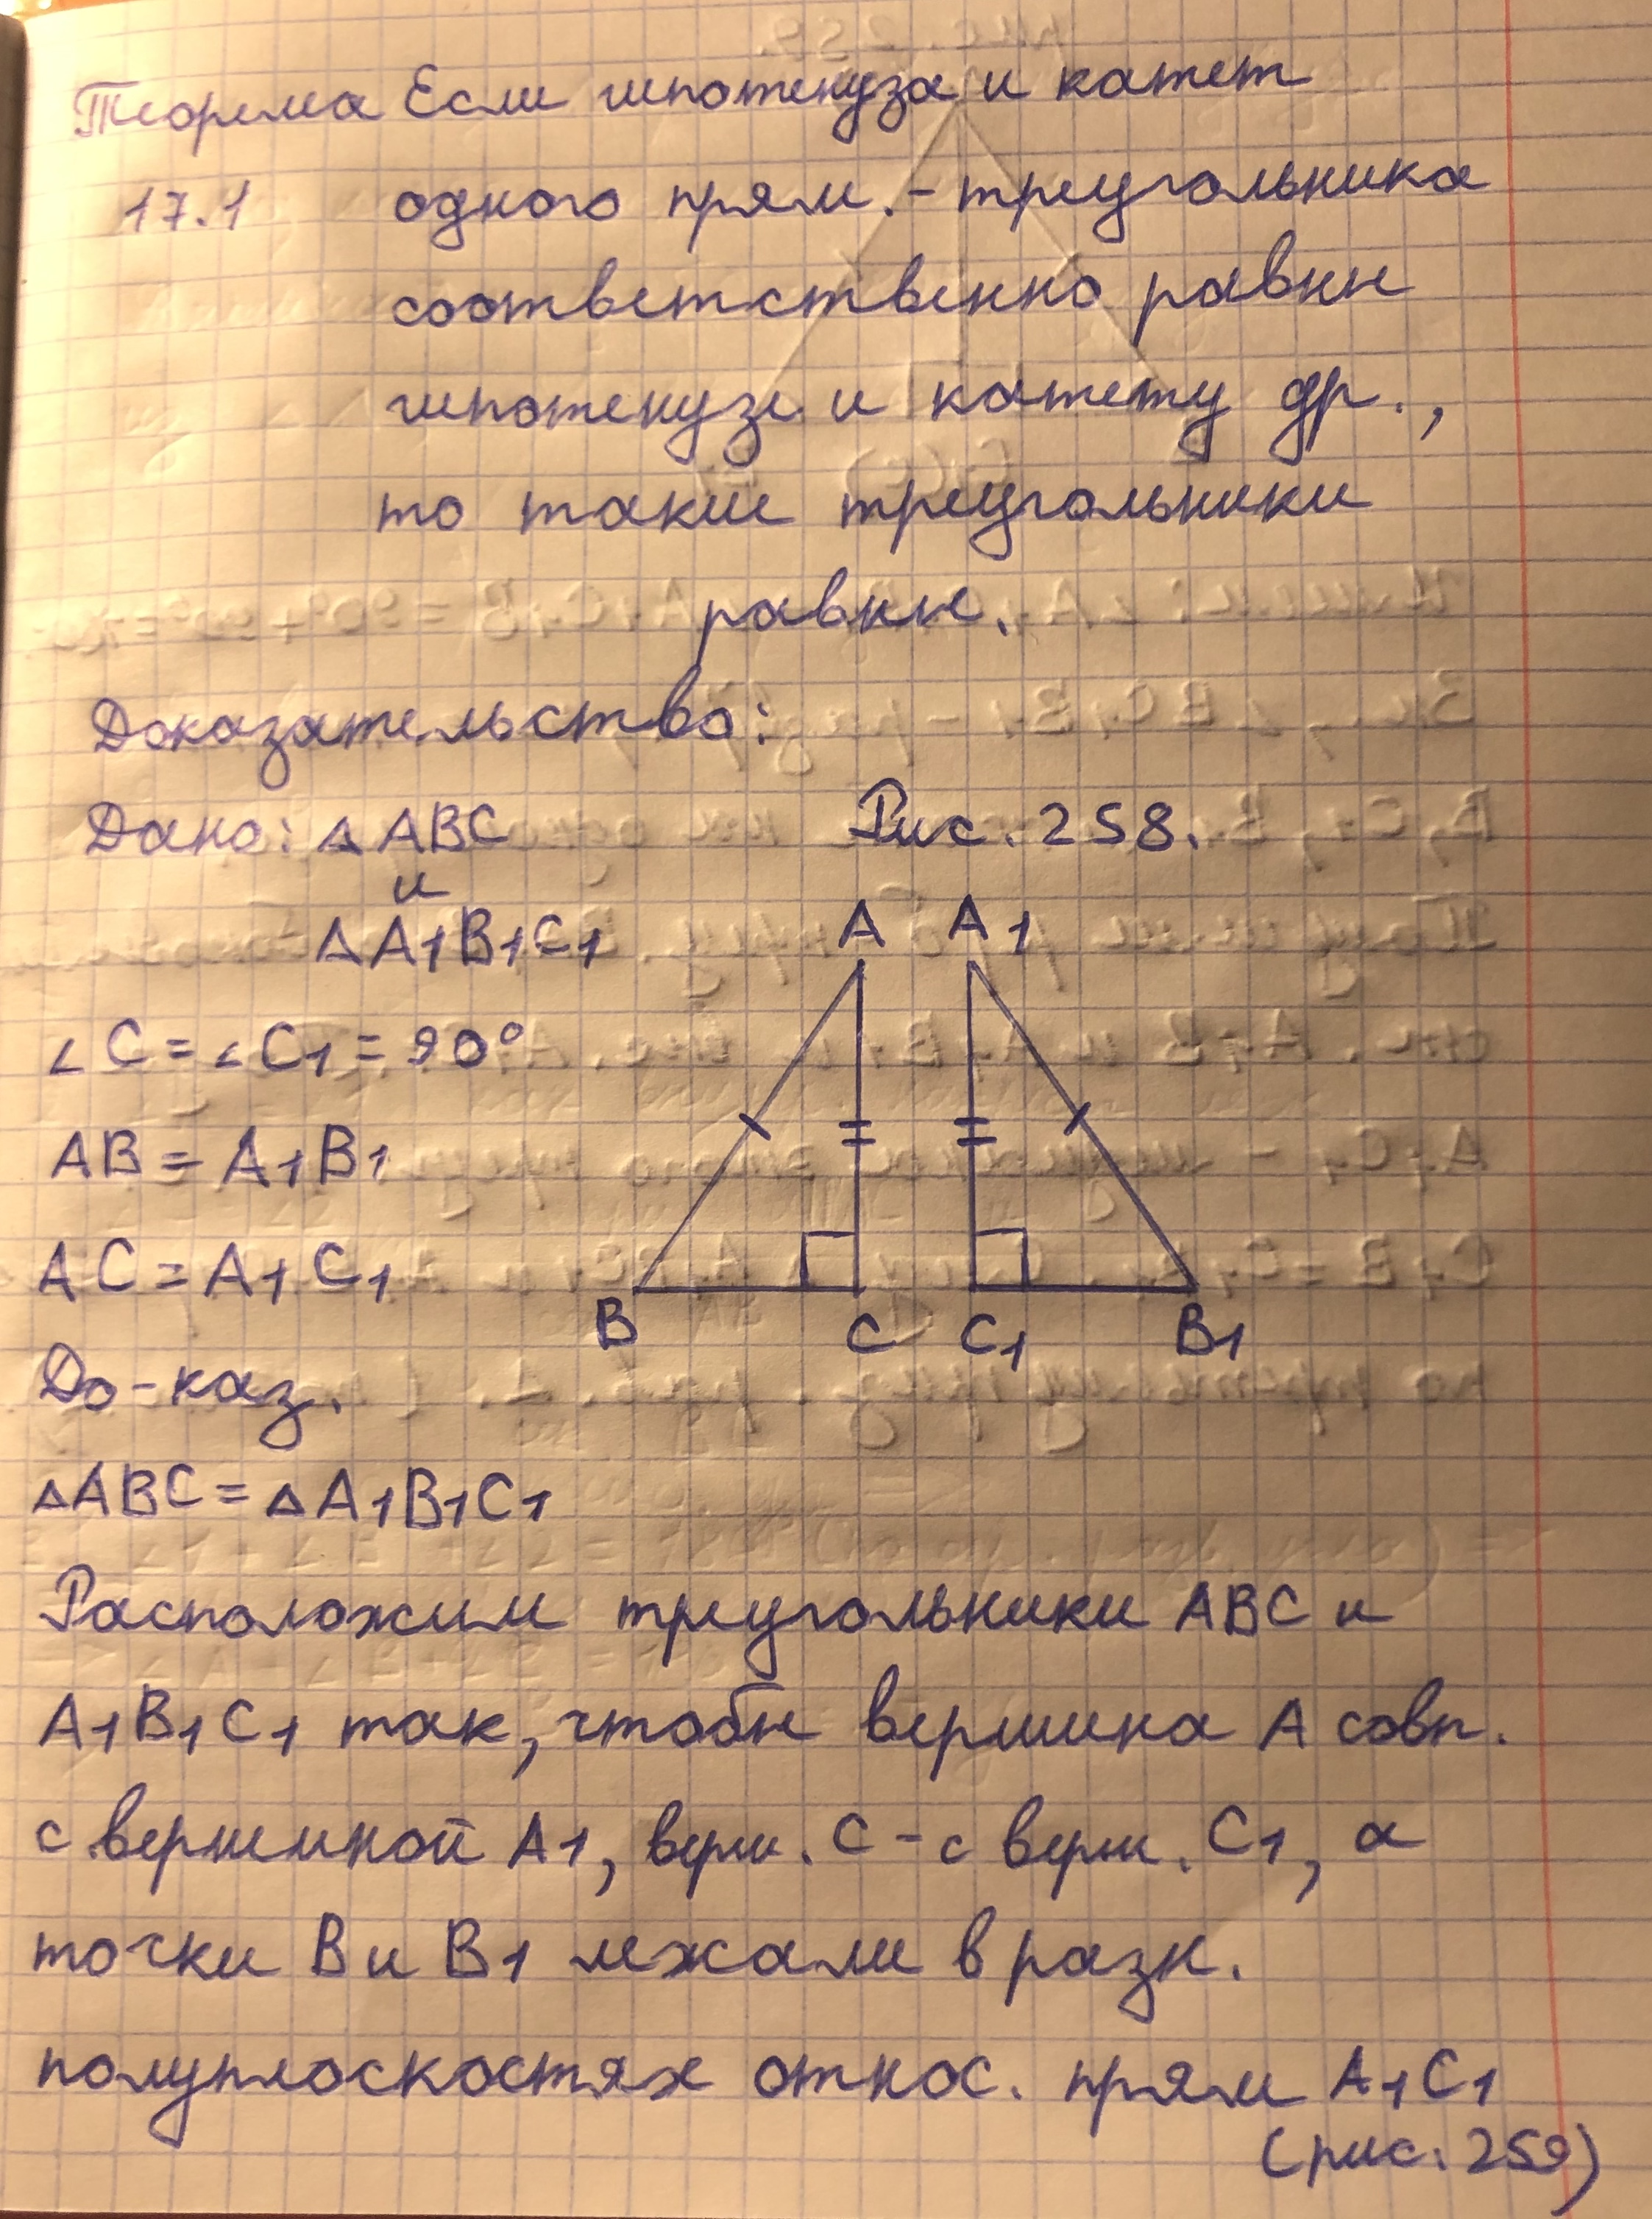 Теорема Если гипотенуза и катет
17.1 одного прям.-треугольника
соответственно равны
гипотенузе и катету др.,
то такие треугольники
равны.
Доказательство:
Дано: △ABC Рис. 258.
и
△A1B1C1 A A1
∠C=∠C1=90°
AB=A1B1
AC=A1C1
B C C1 B1
До-каз.
△ABC=△A1B1C1
Расположим треугольники ABC и
A1B1C1 так, чтобы вершина A совп.
с вершиной A1, верш. C - с верш. C1, а
точки B и B1 лежали в разн.
полуплоскостях относ. прям A1C1
(рис. 259)